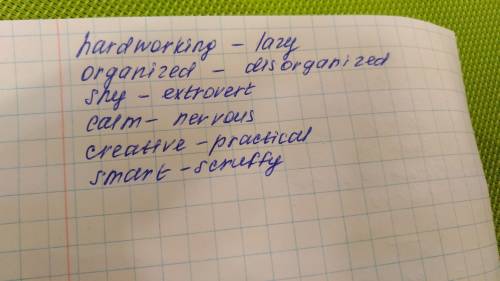 hardworking - lazy
organized - disorganized
shy - extrovert
calm - nervous
creative - practical
smart - scruffy